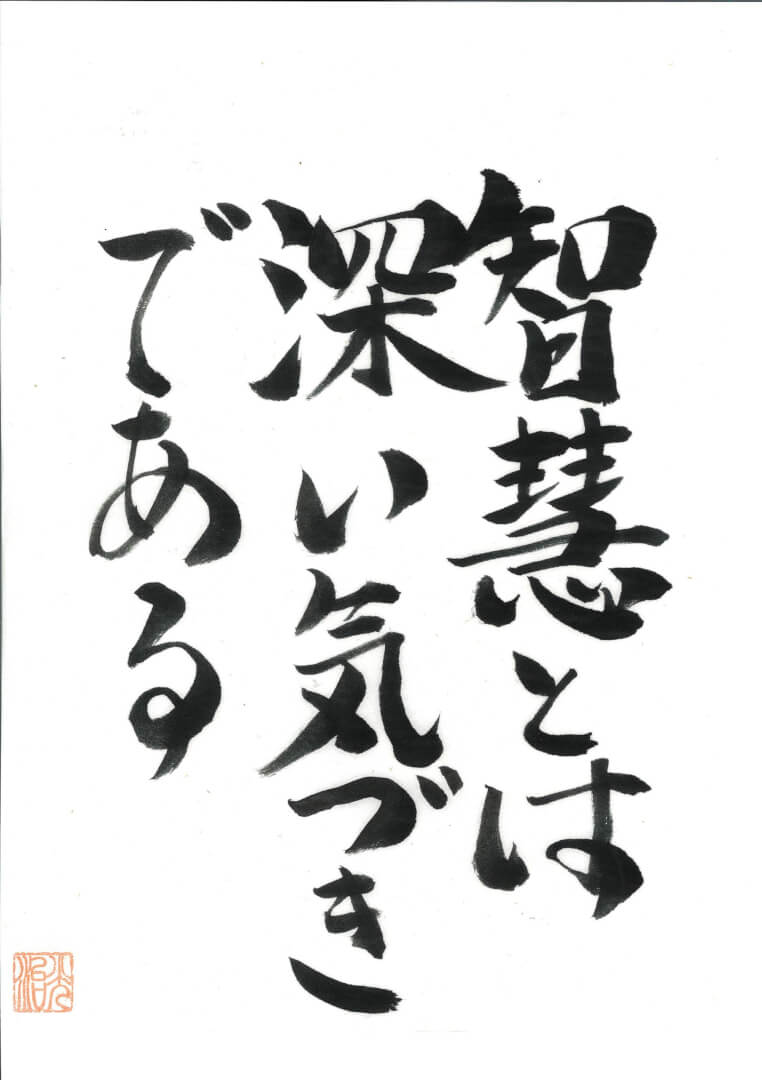 智慧とは
深い気づき
である